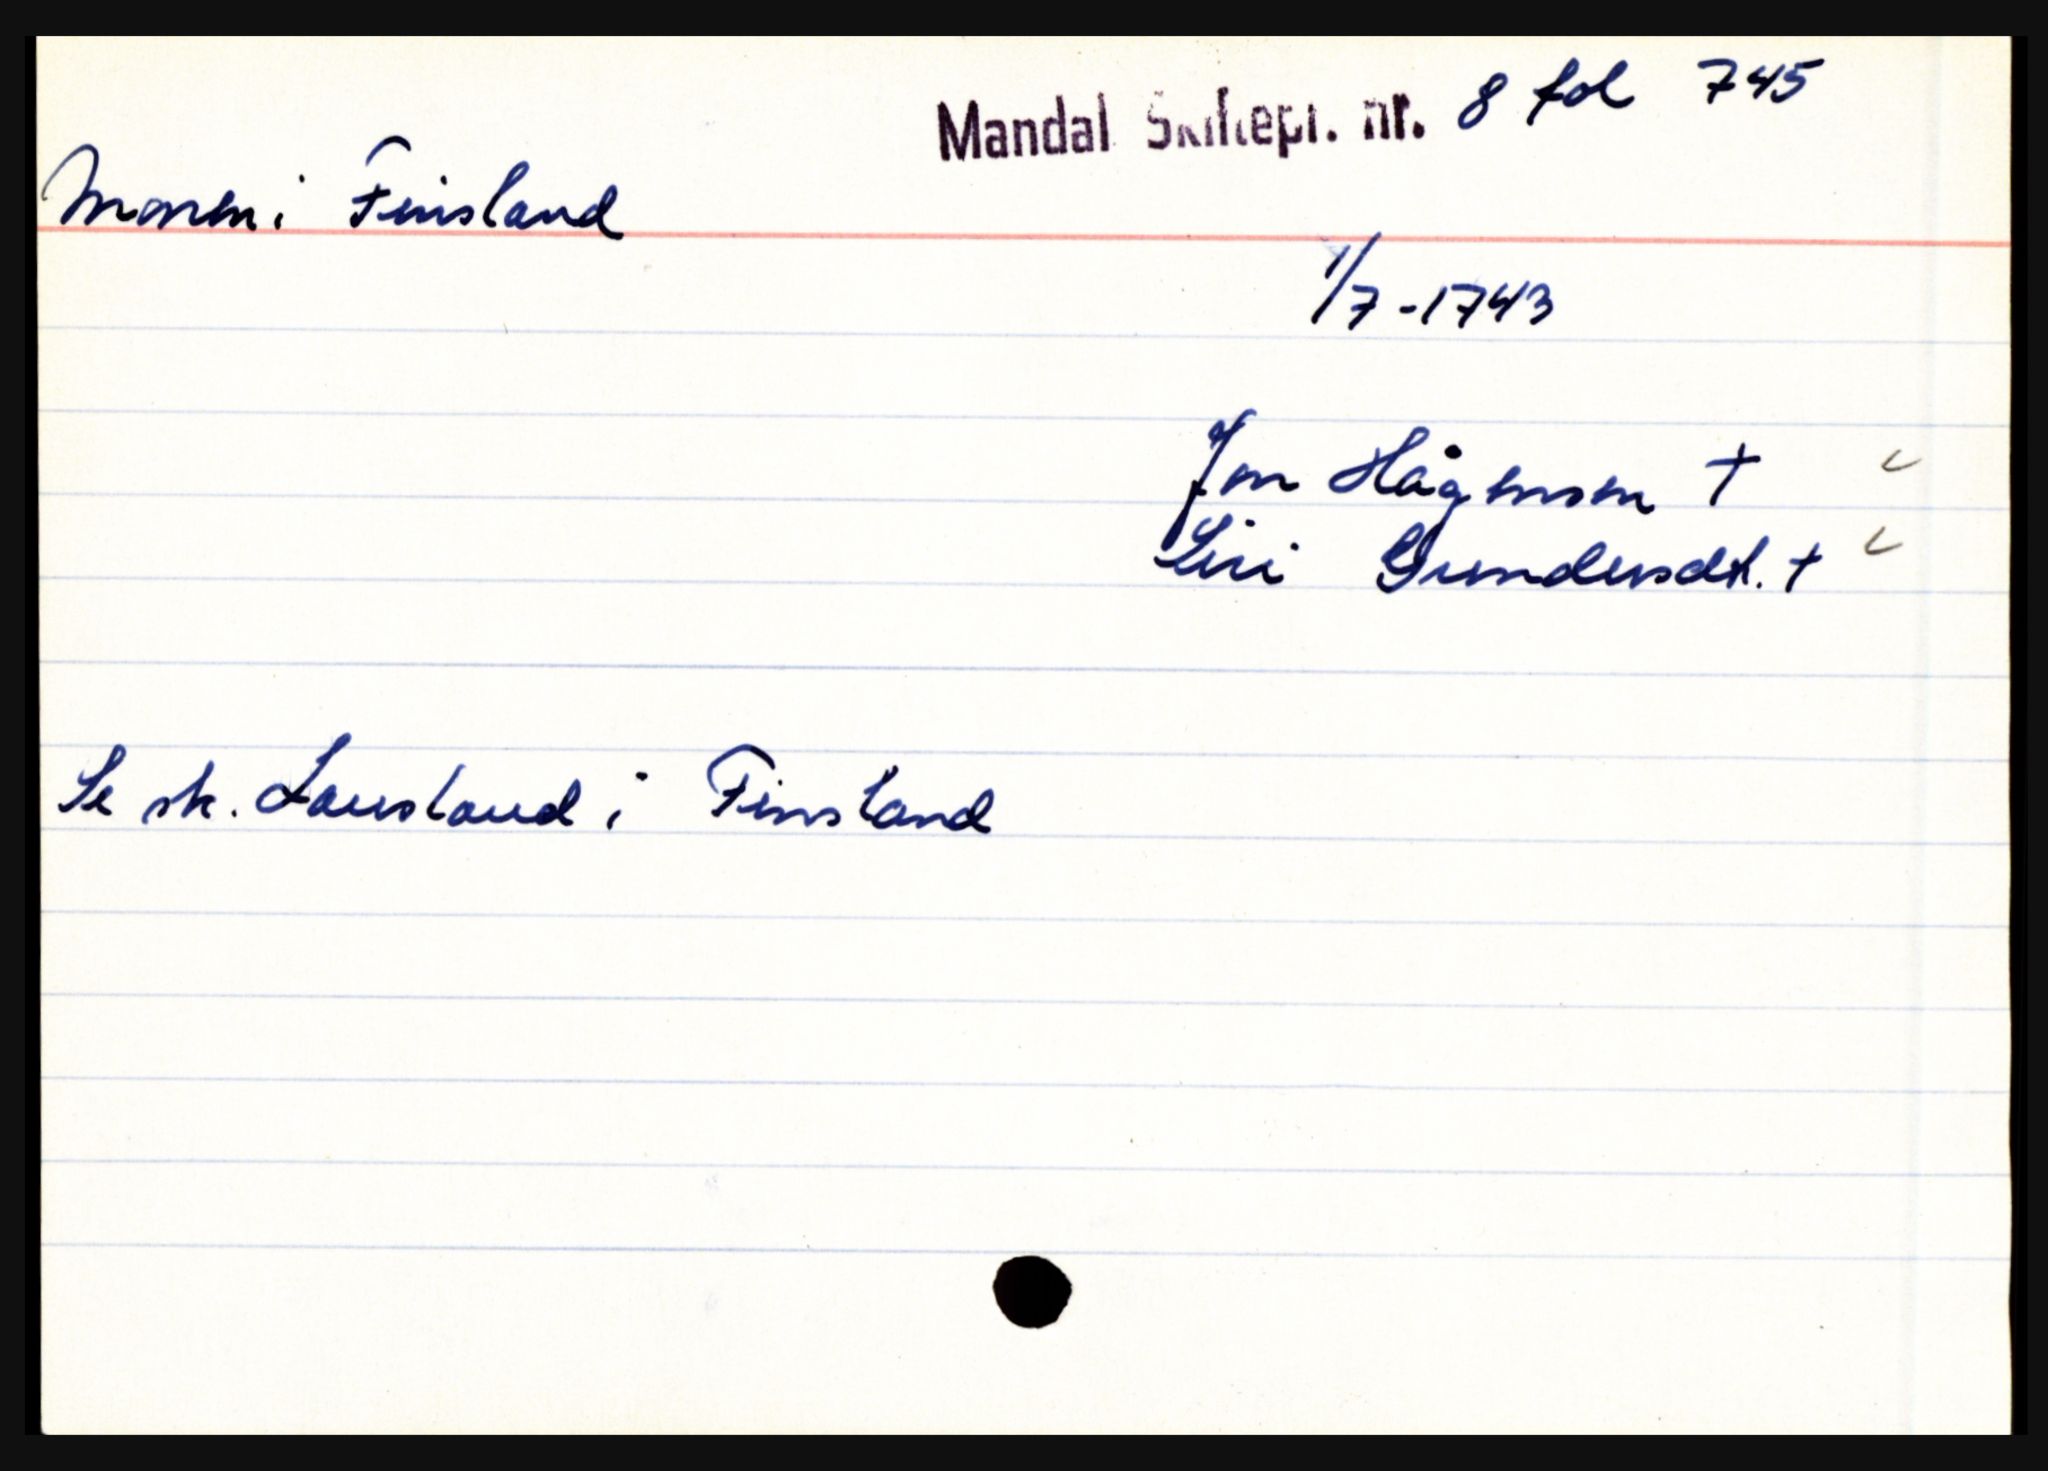 Mandal Skiftepr. nr. 8 fol 745
Monen i Finsland
1/7-1743
Jon Hågensen †
Siri Gundersdt. †
Se sk. Lausland i Finsland